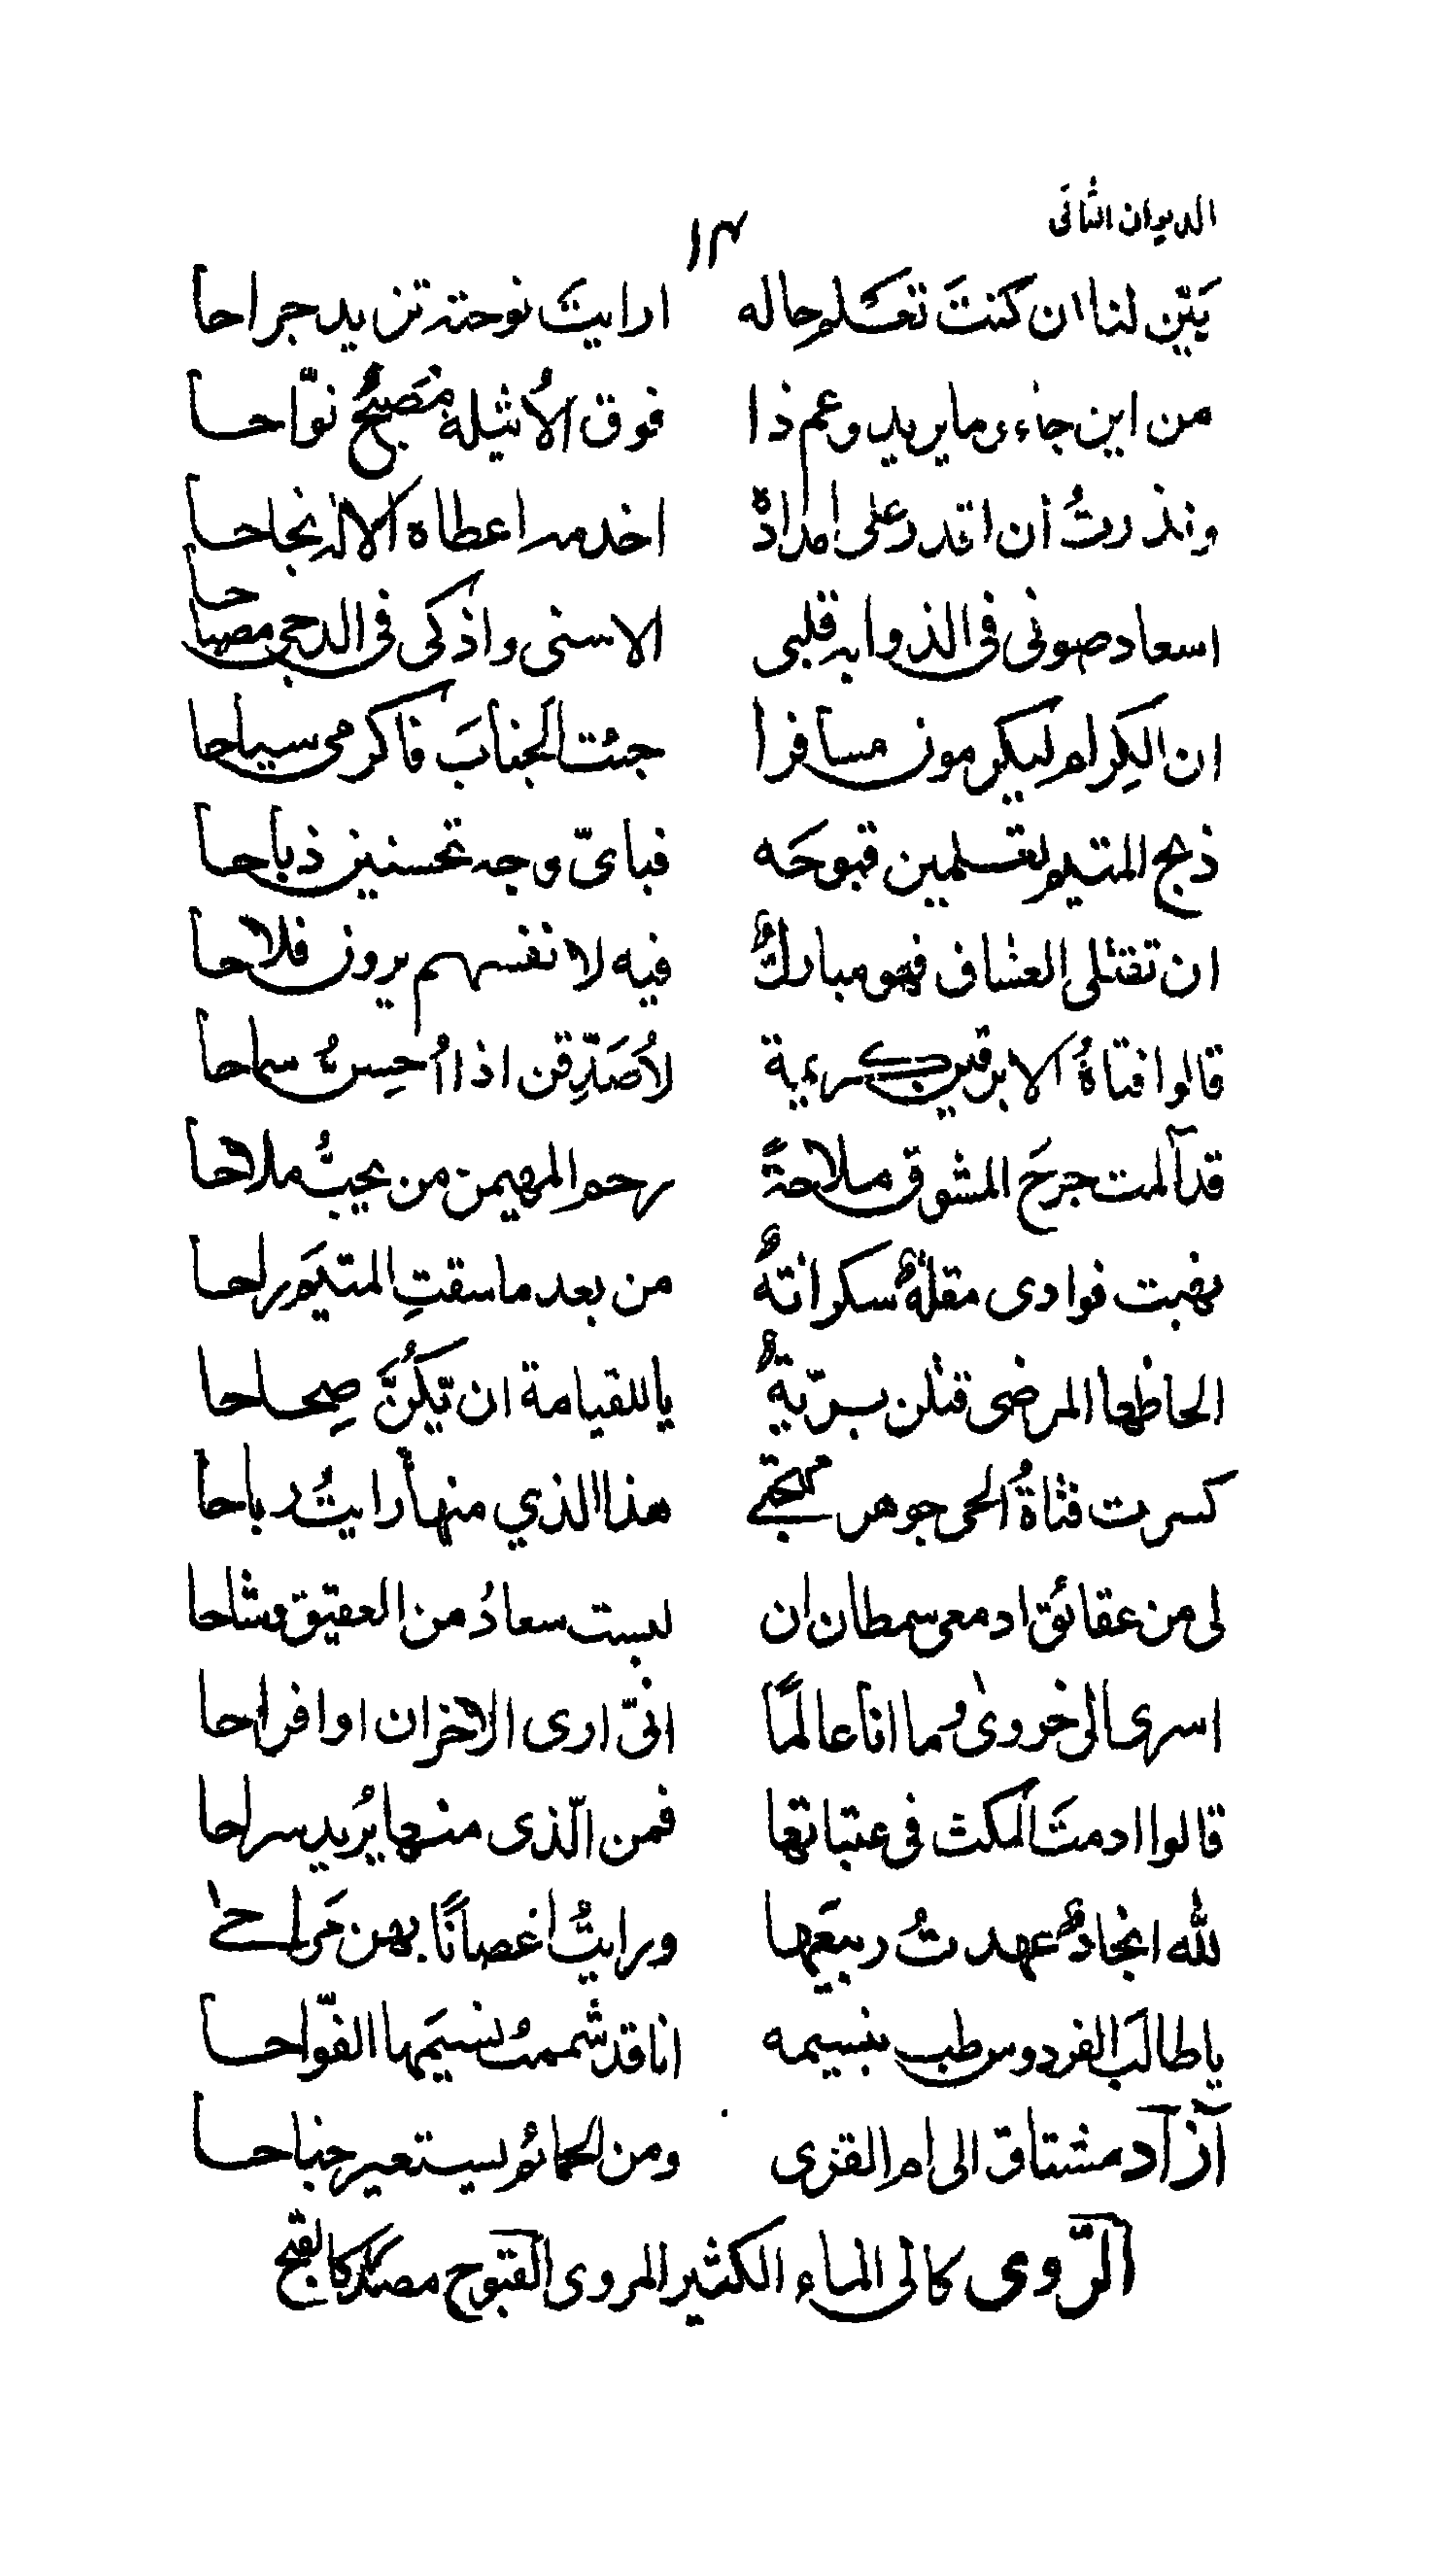 الديوان الثانى
١٤
بَيِّن لنا ان كنتَ تعلم حاله ارايتَ نوحته تزيد جراحا
من اين جاء وما يريد وعم ذا فوق الاُثيلة مُصَبِحٌ نوّاحا
ونذرتُ أن اقدر على امداده اخدمه اعطاه الاله نجاحا
اسعاد صونى فى الذوابه قلبى الاسنى واذكى فى الدجى مصباحا
ان الكِرام ليكرمون مسافرا جئت الجنابَ فاكرمى سياحا
ذبح المتيم تعلمين قبوحَه فباىّ وجه تحسنين ذباحا
ان تقتلى العشاق فهو مباركٌ فيه لانفسهم يرون فلاحا
قالوا فتاةُ الابرقين كريمة لاُصَدِّقن اذا اُحِسنُ سماحا
قد آلمت جرحَ المشوق ملاحةً رحم المهيمن من يحبُّ ملاحا
نهبت فوادى مقلةٌ سكرانةٌ من بعد ما سقتِ المتيَم راحا
الحاظها المرضى قتلن بريّةٌ ياللقيامة ان تَكُنَّ صِحاحا
كسرت فتاةُ الحى جوهر مهجتى هذا الذي منها رايتُ رباحا
لى من عقائق ادمعى سمطان ان لبست سعادُ من العقيق وشاحا
اسرى الى خروىٰ وما انا عالمًا انىّ ارى الاخزان او افراحا
قالوا ادمتَ المكث فى عتباتها فمن الّذى منها يُريد سراحا
لله انجادٌ عهدتُ ربيعَها ورايتُ اغصانًا بهن مَراحى
يا طالبَ الفردوس طب بنسيمه انا قد شممتُ نسيمَها الفوّاحا
آزاد مشتاق الى ام القرى ومن الحمائم يستعير جناحا
الرّوى كالى الماء الكثير المروى القبوح مصدر كالقبح